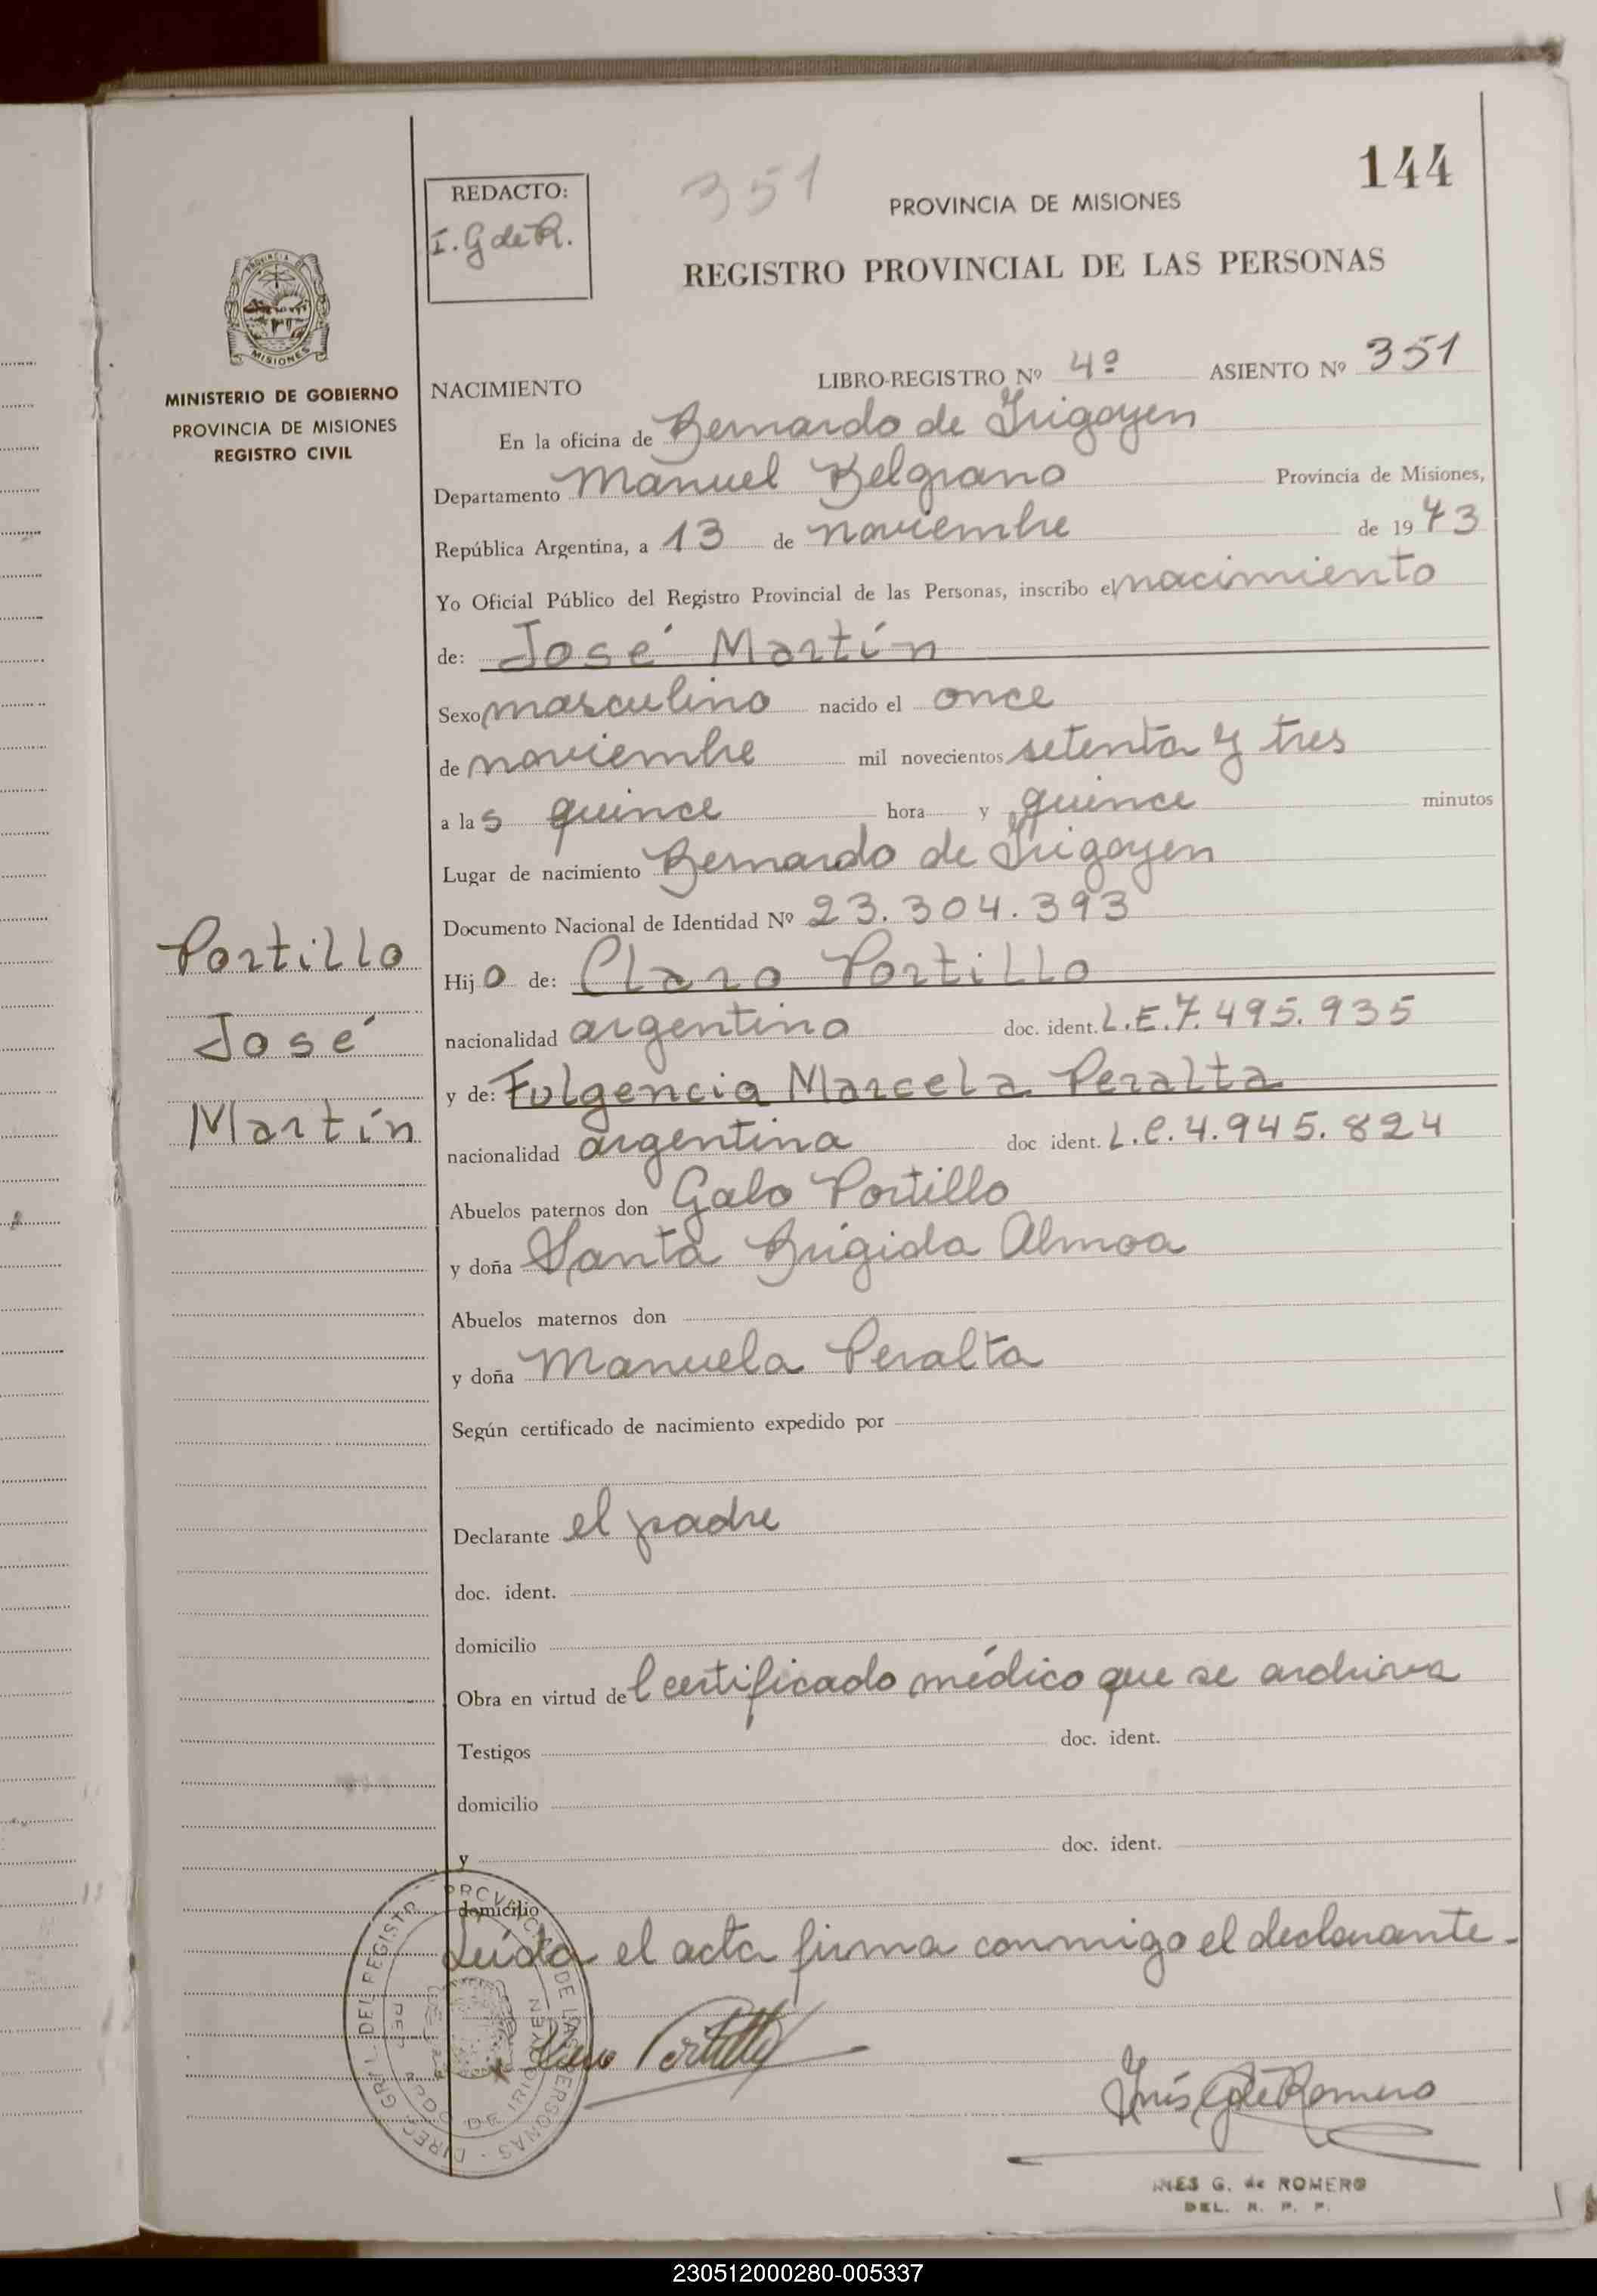 144
351
REDACTO:
I. G de R.
PROVINCIA DE MISIONES
REGISTRO PROVINCIAL DE LAS PERSONAS
MISIONES
MINISTERIO DE GOBIERNO
PROVINCIA DE MISIONES
REGISTRO CIVIL
NACIMIENTO LIBRO-REGISTRO Nº 4º ASIENTO Nº 351
En la oficina de Bernardo de Irigoyen
Departamento Manuel Belgrano Provincia de Misiones,
República Argentina, a 13 de noviembre de 1973
Yo Oficial Público del Registro Provincial de las Personas, inscribo el nacimiento
de: José Martín
Sexo masculino nacido el once
de noviembre mil novecientos setenta y tres
a las quince hora y quince minutos
Lugar de nacimiento Bernardo de Irigoyen
Documento Nacional de Identidad Nº 23.304.393
Portillo
José
Martín
Hijo de: Claro Portillo
nacionalidad argentino doc. ident. L.E.7.495.935
y de: Fulgencia Marcela Peralta
nacionalidad argentina doc ident. L.C.4.945.824
Abuelos paternos don Galo Portillo
y doña Santa Brígida Almoa
Abuelos maternos don
y doña Manuela Peralta
Según certificado de nacimiento expedido por
Declarante el padre
doc. ident.
domicilio
Obra en virtud del certificado médico que se archiva
Testigos doc. ident.
domicilio
y doc. ident.
domicilio
Leída el acta firma conmigo el declarante.
Claro Portillo
Inés G de Romero
INES G. de ROMERO
DEL. R. P. P.
230512000280-005337